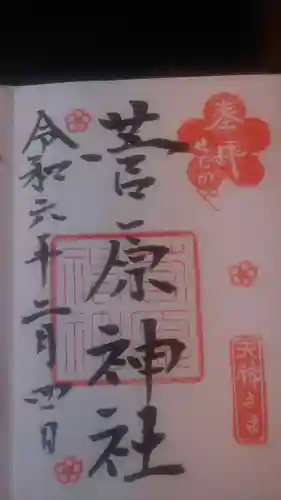 奉拝
菅原神社
天神さま
令和六年二月四日